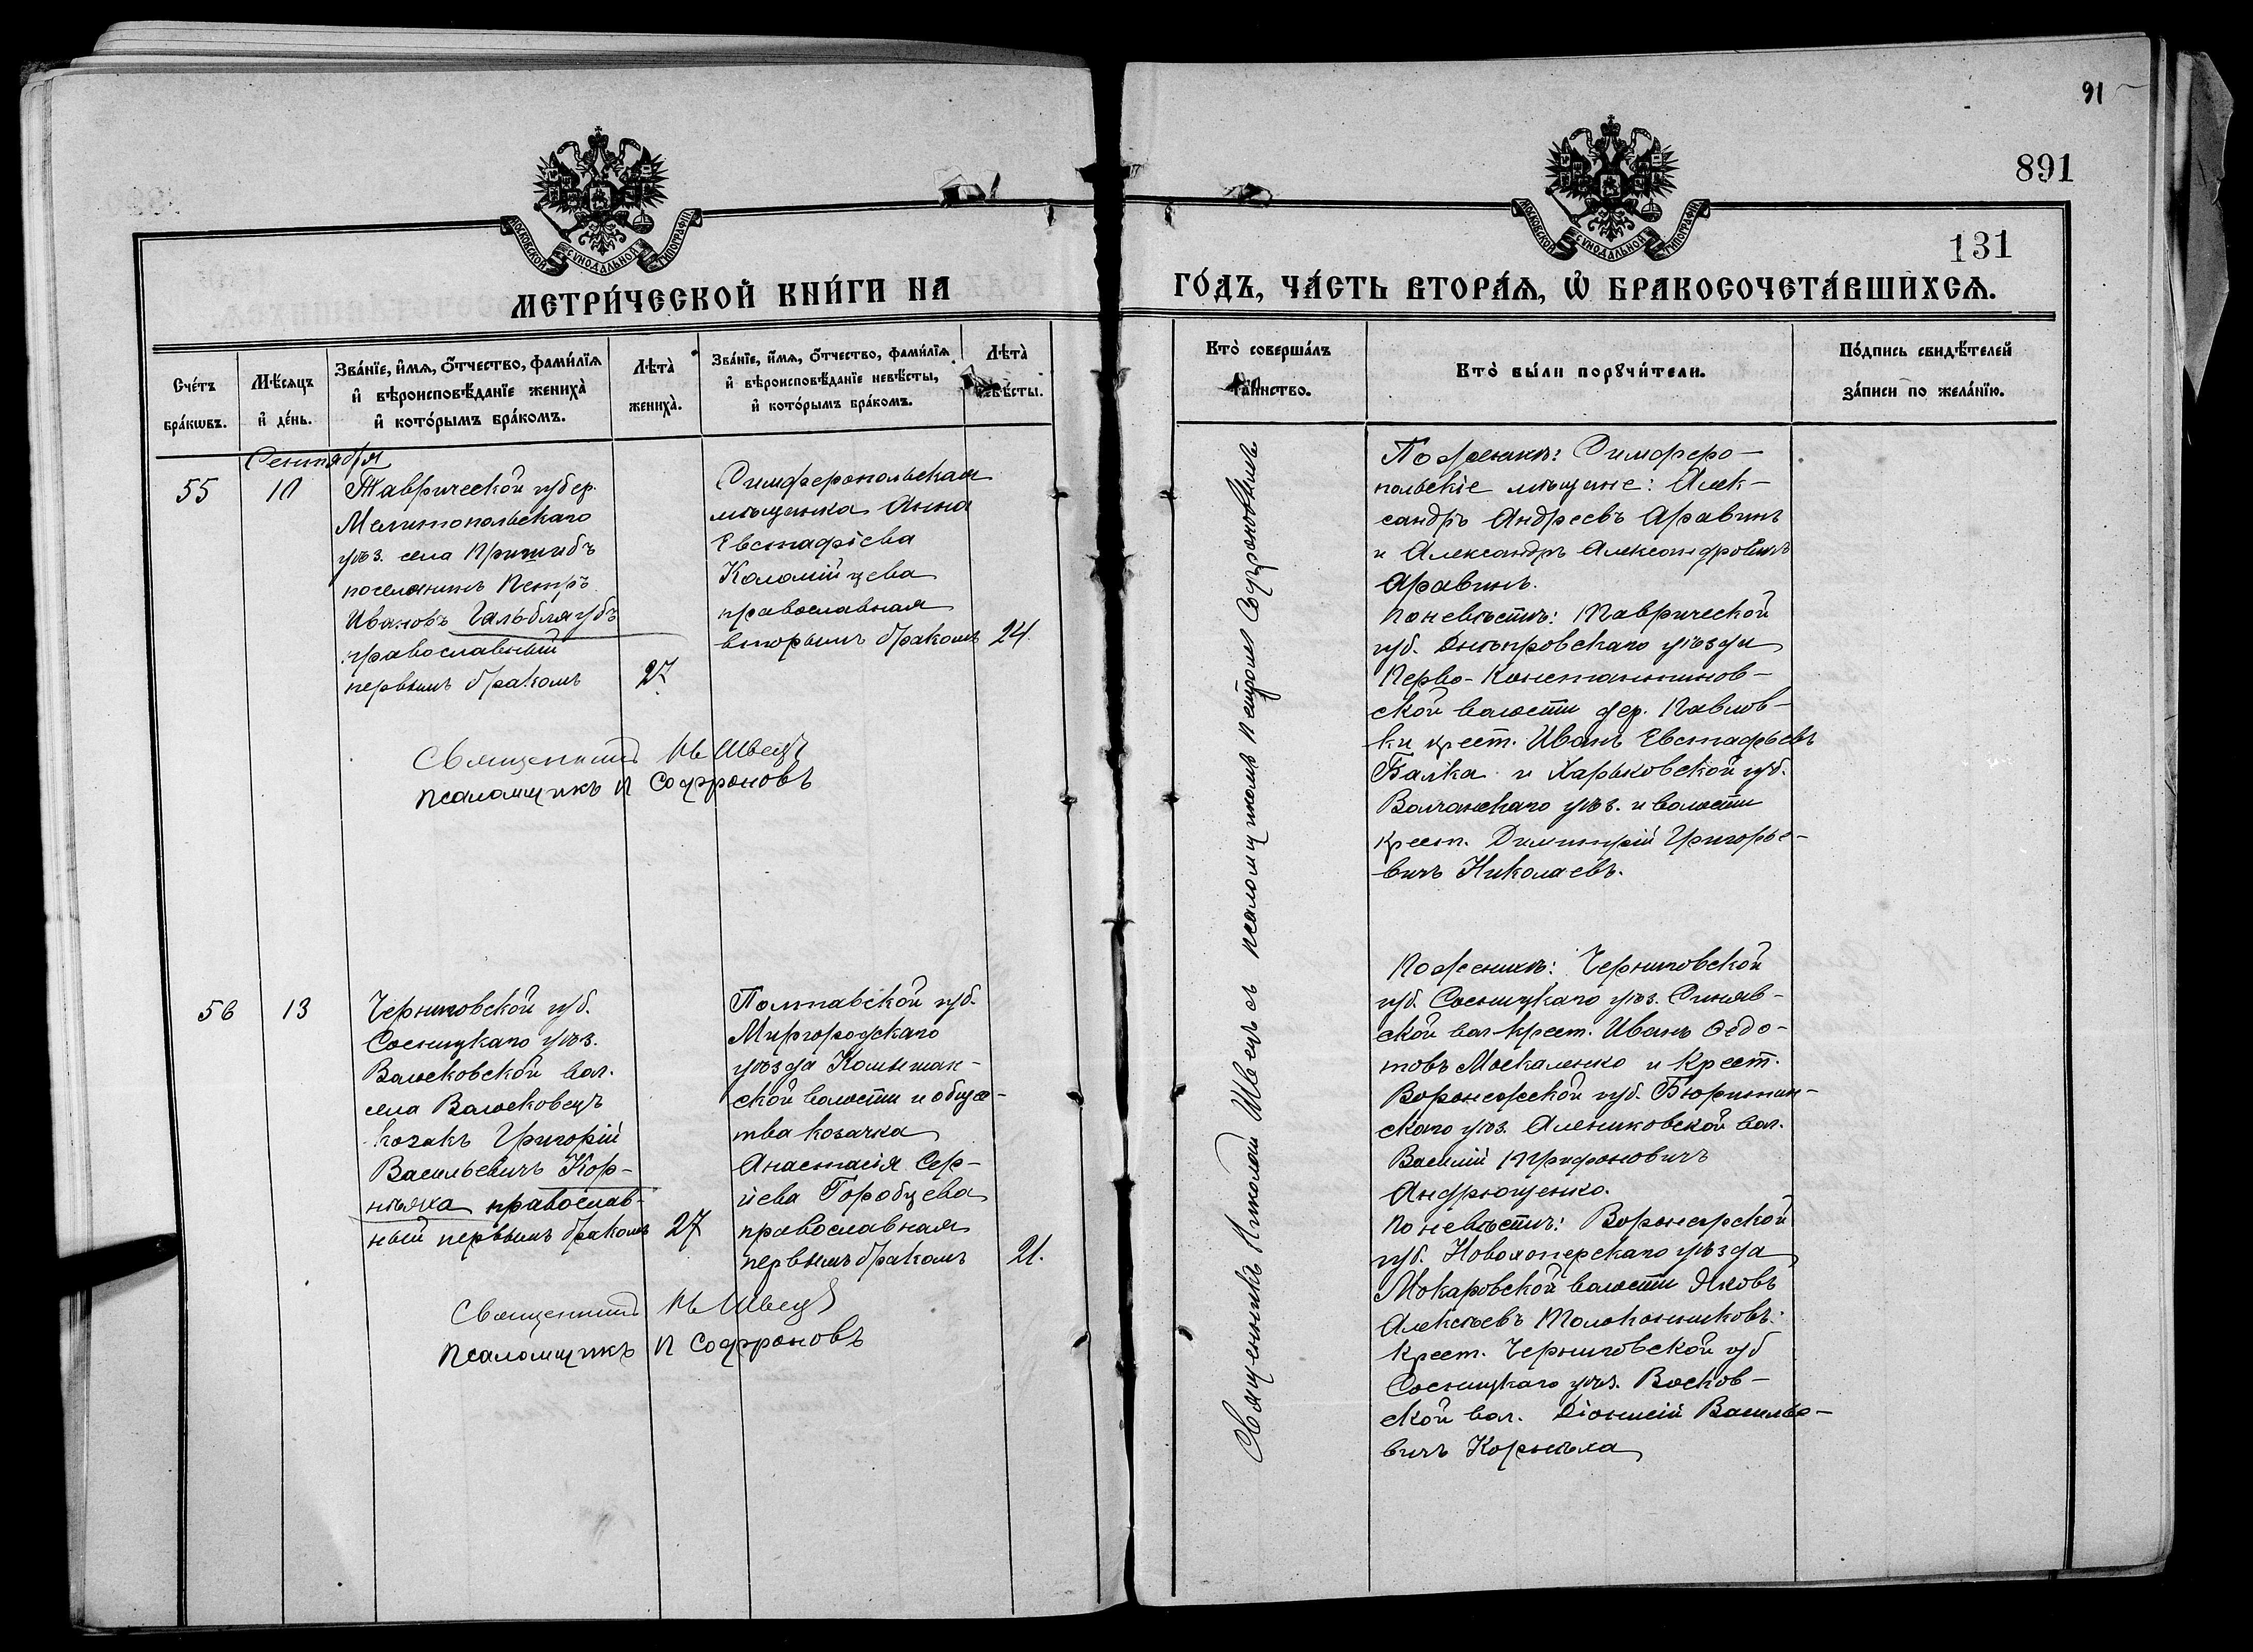 91
891
131
МОСКОВСКОЙ СѴНОДАЛЬНОЙ ТИПОГРАФІИ
МОСКОВСКОЙ СѴНОДАЛЬНОЙ ТИПОГРАФІИ
МЕТРИ́ЧЕСКОЙ КНИ́ГИ НА
ГО́ДЪ, ЧА́СТЬ ВТОРА́Я, Ѡ҆ БРАКОСОЧЕТА́ВШИХСЯ.
Сче́тъ
бра́кѡвъ.
Мѣ́сяцъ
и҆ де́нь.
Зва́нїе, и҆́мя, ѻ҆́тчество, фами́лїя
и҆ вѣроисповѣ́данїе жениха̀
и҆ кото́рымъ бра́комъ.
Лѣта̀
жениха̀.
Зва́нїе, и҆́мя, ѻ҆́тчество, фами́лїя
и҆ вѣроисповѣ́данїе невѣ́сты,
и҆ кото́рымъ бра́комъ.
Лѣта̀
невѣ́сты.
Кто̀ соверша́лъ
та́инство.
Кто̀ бы́ли порꙋчи́тели.
По́дпись свидѣ́телей
за́писи по жела́нїю.
Сентября
55
10
Таврической губер.
Мелитопольскаго
уѣз. села Пришибъ
поселянинъ Петръ
Ивановъ Гальблаубъ
православный
первымъ бракомъ
27.
Симферопольская
мѣщанка Анна
Евстафіева
Коломійцева
православная
вторымъ бракомъ
24.
Священникъ Н Швецъ
Псаломщикъ П Софроновъ
Священникъ Николай Швецъ съ псаломщикомъ Петромъ Софроновымъ
По женихѣ: Симферо-
польскіе мѣщане: Алек-
сандръ Андреевъ Аравинъ
и Александръ Александровичъ
Аравинъ.
По невѣстѣ: Таврической
губ. Днѣпровскаго уѣзда
Перво-Константинов-
ской волости дер. Павлов-
ки крест. Иванъ Евстафьевъ
Балка и Харьковской губ.
Волчанскаго уѣз. и волости
крест. Димитрій Григорье-
вичъ Николаевъ.
56
13
Черниговской губ.
Сосницкаго уѣз.
Волосковской вол.
села Волосковецъ
козакъ Григорій
Васильевичъ Кор-
нѣяка православ-
ный первымъ бракомъ
27
Полтавской губ.
Миргородскаго
уѣзда Комышан-
ской волости и общес-
тва козачка
Анастасія Сер-
гіева Горобцева
православная
первымъ бракомъ
21.
Священникъ Н Швецъ
Псаломщикъ П Софроновъ
По женихѣ: Черниговской
губ. Сосницкаго уѣз. Синяв-
ской вол. крест. Иванъ Ѳедо-
товъ Москаленко и Крест.
Воронежской губ. Бюричин-
скаго уѣз. Алешковской вол.
Василій Трифоновичъ
Андрющенко.
По невѣстѣ: Воронежской
губ. Новохоперскаго уѣзда
Макаровской волости Яковъ
Алексѣевъ Толоконниковъ:
крест. Черниговской губ
Сосницкаго уѣз. Восков-
ской вол. Діонисій Василье-
вичъ Корнѣяка